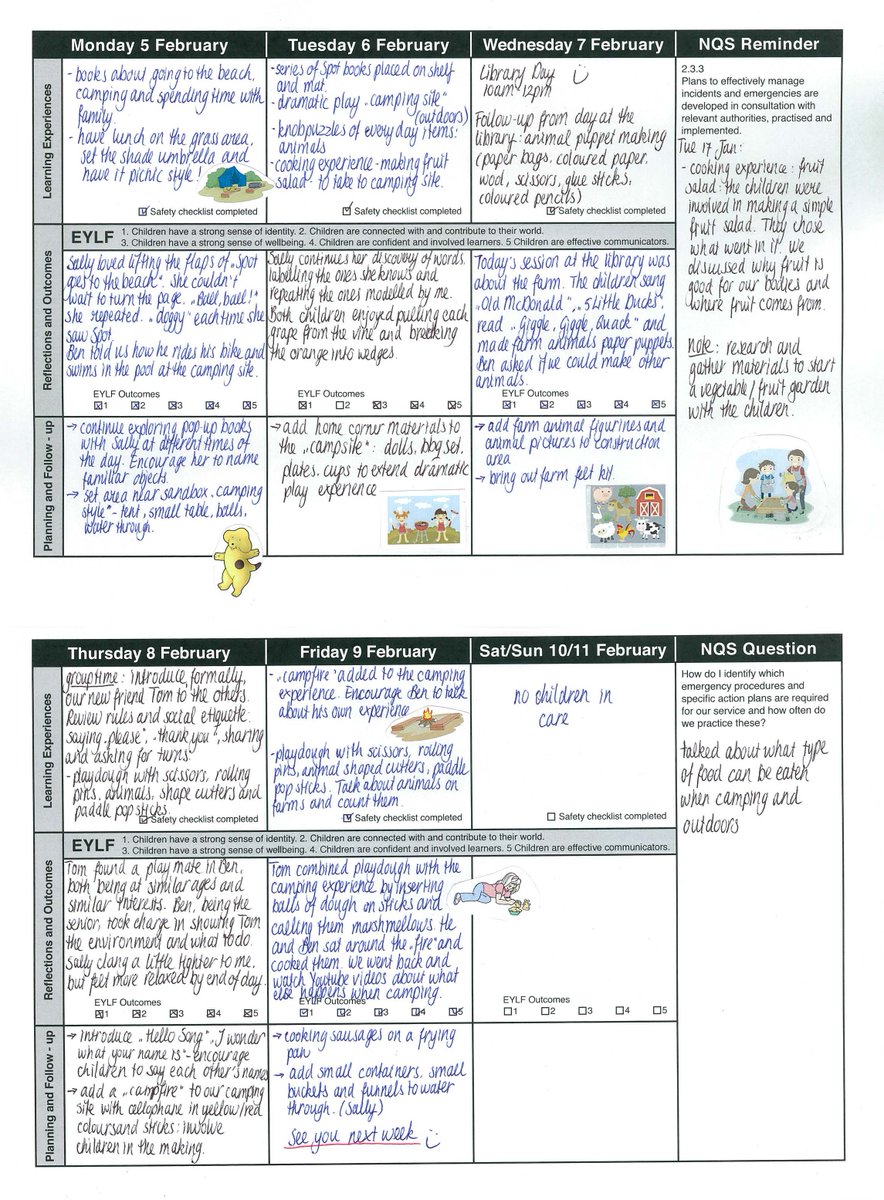 Monday 5 February
Tuesday 6 February
Wednesday 7 February
NQS Reminder
Learning Experiences
- books about going to the beach,
camping and spending time with
family
- have lunch on the grass area,
set the shade umbrella and
have it picnic style!
Safety checklist completed
- series of Spot books placed on shelf
and mat.
- dramatic play "camping site"
(outdoors)
- knobpuzzles of every day items:
animals
- cooking experience - making fruit
salad - to take to camping site.
Safety checklist completed
Library Day
10am - 12pm
Follow-up from day at the
library: animal puppet making
(paper bags, coloured paper,
wool, scissors, glue sticks,
coloured pencils)
Safety checklist completed
2.3.3
Plans to effectively manage
incidents and emergencies are
developed in consultation with
relevant authorities, practised and
implemented.
Tue 17 Jan:
- cooking experience: fruit
salad: the children were
involved in making a simple
fruit salad. They chose
what went in it. We
discussed why fruit is
good for our bodies and
where fruit comes from.
Note: research and
gather materials to start
a vegetable/fruit garden
with the children.
EYLF
1. Children have a strong sense of identity. 2. Children are connected with and contribute to their world.
3. Children have a strong sense of wellbeing. 4. Children are confident and involved learners. 5 Children are effective communicators.
Reflections and Outcomes
Sally loved lifting the flaps of "Spot
goes to the beach". She couldn't
wait to turn the page. "Ball, ball!"
she repeated. "doggy" each time she
saw Spot.
Ben told us how he rides his bike and
swims in the pool at the camping site.
EYLF Outcomes
1 2 3 4 5
Sally continues her discovery of words,
labelling the ones she knows and
repeating the ones modelled by me.
Both children enjoyed pulling each
grape from the vine and breaking
the orange into wedges.
EYLF Outcomes
1 2 3 4 5
Today's session at the library was
about the farm. The children sang
"Old McDonald", "5 Little Ducks",
read "Giggle, Giggle, Quack" and
made farm animals paper puppets.
Ben asked if we could make other
animals.
EYLF Outcomes
1 2 3 4 5
Planning and Follow - up
→ continue exploring pop-up books
with Sally at different times of
the day. Encourage her to name
familiar objects.
→ set area near sandbox "camping
style" - tent, small table, balls,
water through.
→ add home corner materials to
the "campsite": dolls, bbq set,
plates, cups to extend dramatic
play experience
→ add farm animal figurines and
animal pictures to construction
area
→ bring out farm felt kit.
Thursday 8 February
Friday 9 February
Sat/Sun 10/11 February
NQS Question
Learning Experiences
grouptime: introduce formally,
our new friend Tom to the others.
Review rules and social etiquette:
saying "please", "thank you", sharing
and asking for turns.
- playdough with scissors, rolling
pins, animals, shape cutters and
paddle pop sticks.
Safety checklist completed
- "campfire" added to the camping
experience. Encourage Ben to talk
about his own experience
- playdough with scissors, rolling
pins, animal shaped cutters, paddle
pop sticks. Talk about animals on
farms and count them.
Safety checklist completed
no children in
care
Safety checklist completed
How do I identify which
emergency procedures and
specific action plans are required
for our service and how often do
we practice these?
talked about what type
of food can be eaten
when camping and
outdoors
EYLF
1. Children have a strong sense of identity. 2. Children are connected with and contribute to their world.
3. Children have a strong sense of wellbeing. 4. Children are confident and involved learners. 5 Children are effective communicators.
Reflections and Outcomes
Tom found a play mate in Ben,
both being at similar ages and
similar interests. Ben, being the
senior, took charge in showing Tom
the environment and what to do.
Sally clang a little tighter to me,
but felt more relaxed by end of day.
EYLF Outcomes
1 2 3 4 5
Tom combined playdough with the
camping experience by inserting
balls of dough on sticks and
calling them marshmellows. He
and Ben sat around the "fire" and
cooked them. We went back and
watch Youtube videos about what
else happens when camping.
EYLF Outcomes
1 2 3 4 5
EYLF Outcomes
1 2 3 4 5
Planning and Follow - up
→ introduce "Hello Song", "I wonder
what your name is" - encourage
children to say each other's names
→ add a "campfire" to our camping
site with cellophane in yellow/red
colours and sticks: involve
children in the making.
→ cooking sausages on a frying
pan
→ add small containers, small
buckets and funnels to water
through. (Sally)
See you next week